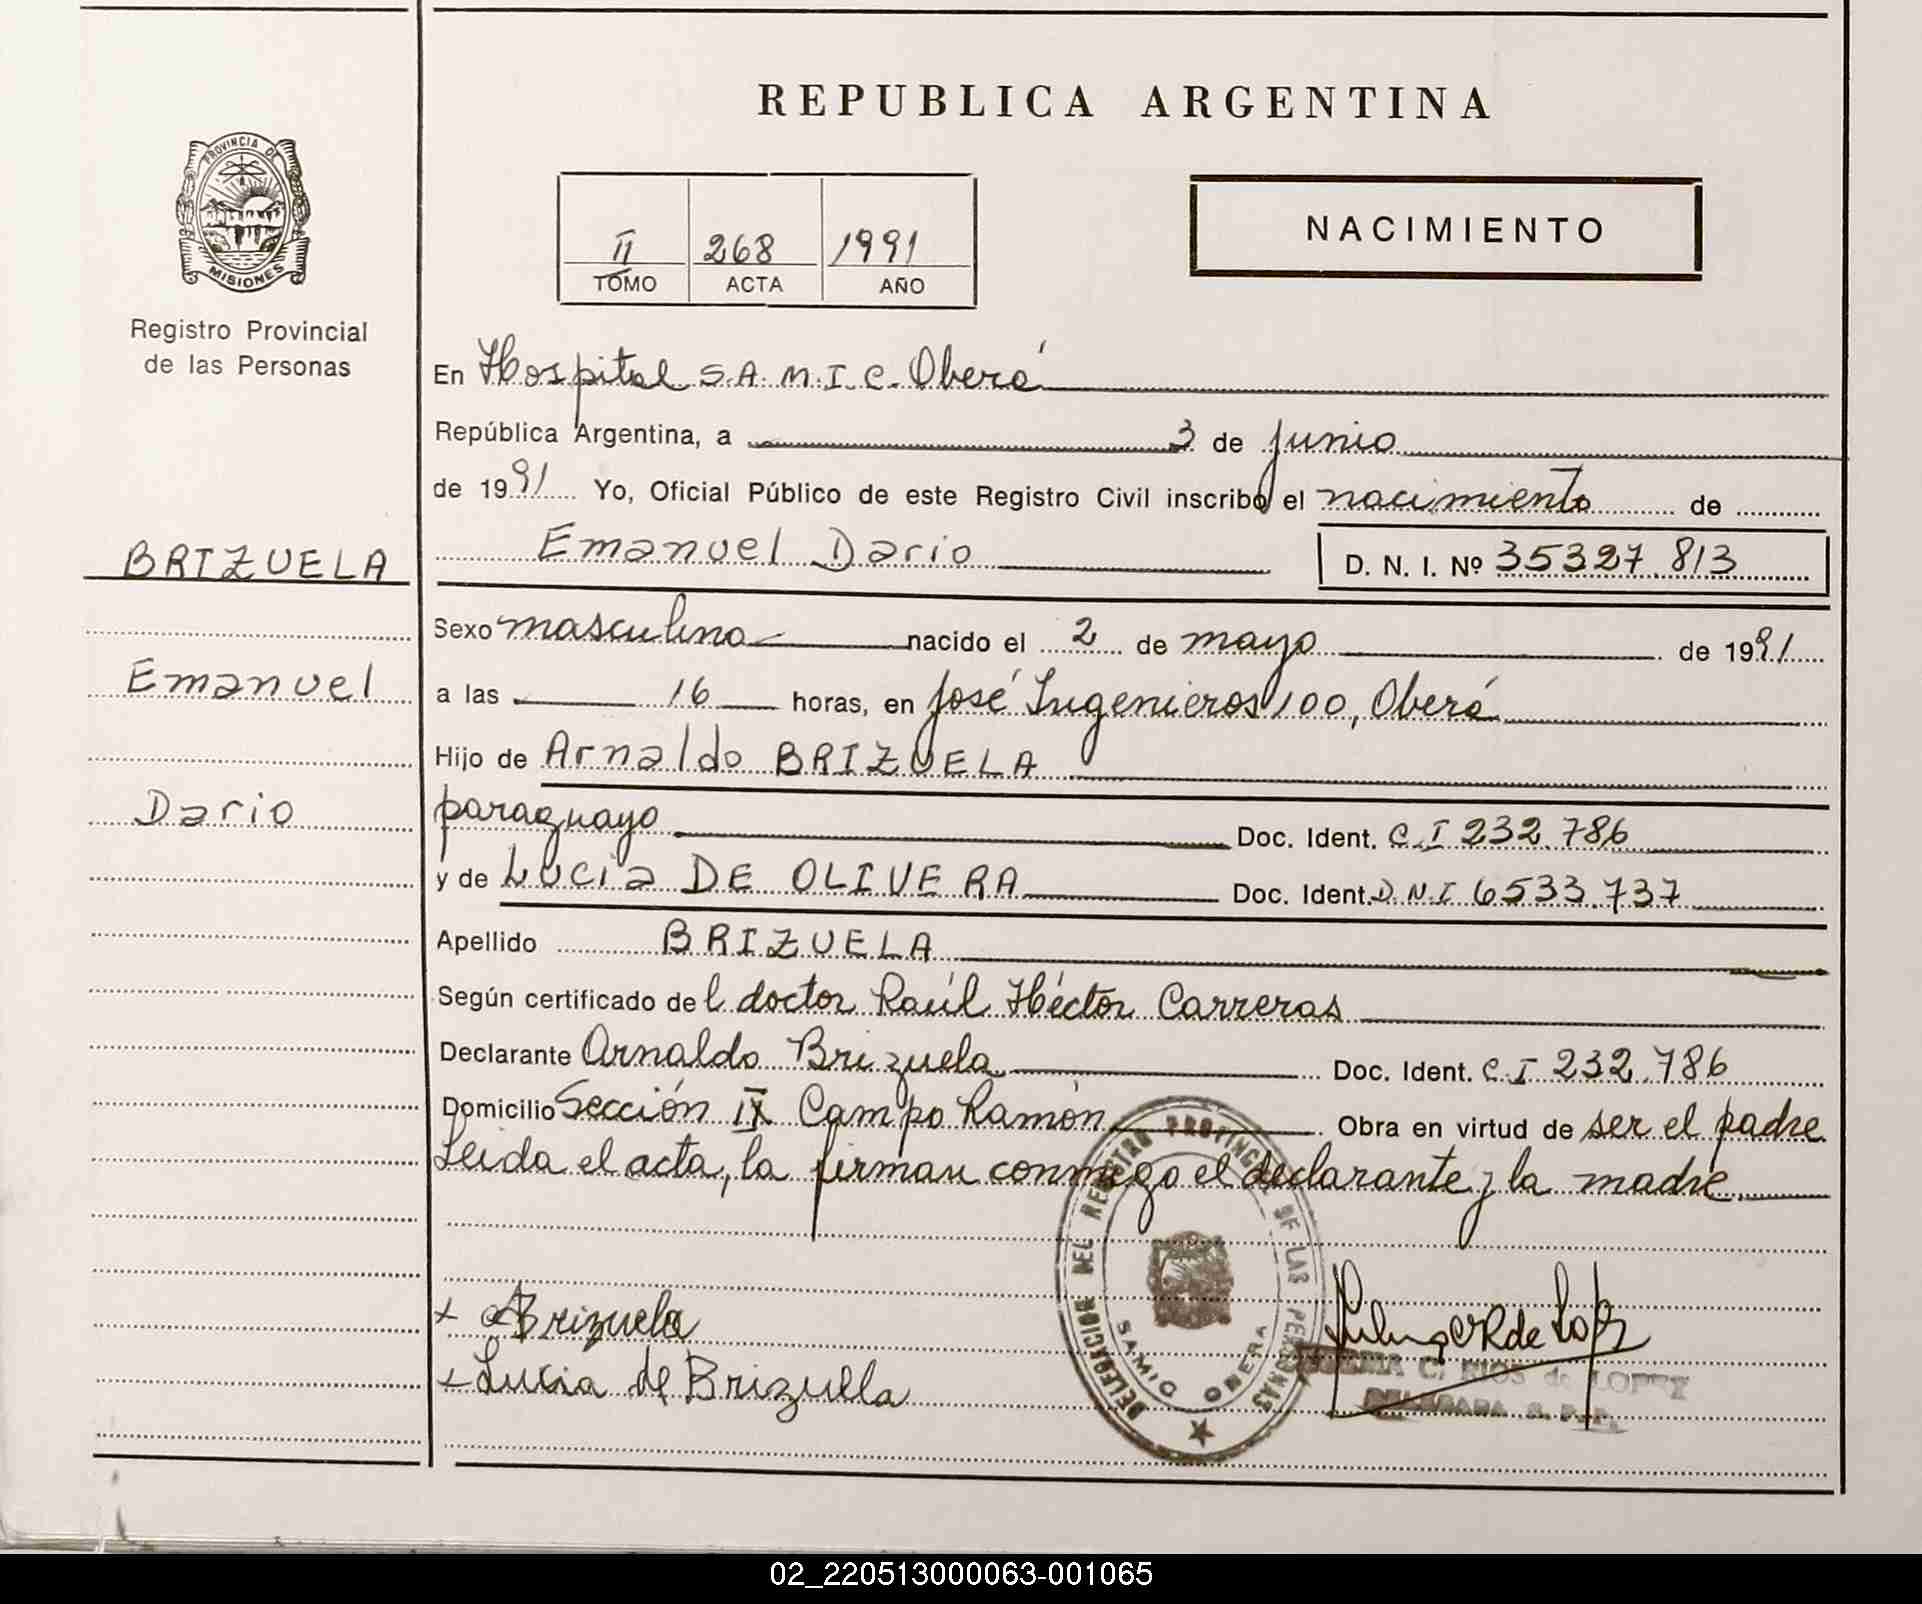 REPUBLICA ARGENTINA
PROVINCIA DE
MISIONES
Registro Provincial
de las Personas
II 268 1991
TOMO ACTA AÑO
NACIMIENTO
En Hospital S.A.M.I.C. Oberá
República Argentina, a 3 de junio
de 1991 Yo, Oficial Público de este Registro Civil inscribo el nacimiento de
BRIZUELA
Emanuel Dario D. N. I. Nº 35327.813
Sexo masculino nacido el 2 de mayo de 1991
Emanuel
a las 16 horas, en José Ingenieros 100, Oberá
Hijo de Arnaldo BRIZUELA
Dario
paraguayo Doc. Ident. C.I 232.786
y de Lucia DE OLIVERA Doc. Ident. D.N.I 6533.737
Apellido BRIZUELA
Según certificado del doctor Raúl Héctor Carreras
Declarante Arnaldo Brizuela Doc. Ident. C I 232.786
Domicilio Sección IX Campo Ramón Obra en virtud de ser el padre
Leida el acta, la firman conmigo el declarante y la madre
DELEGACION DEL REGISTRO PROVINCIAL DE LAS PERSONAS
SAMIC OBERA
+ ABrizuela
+ Lucia de Brizuela
C. RIOS de LOPEZ
DELEGADA R. P. P.
02_220513000063-001065